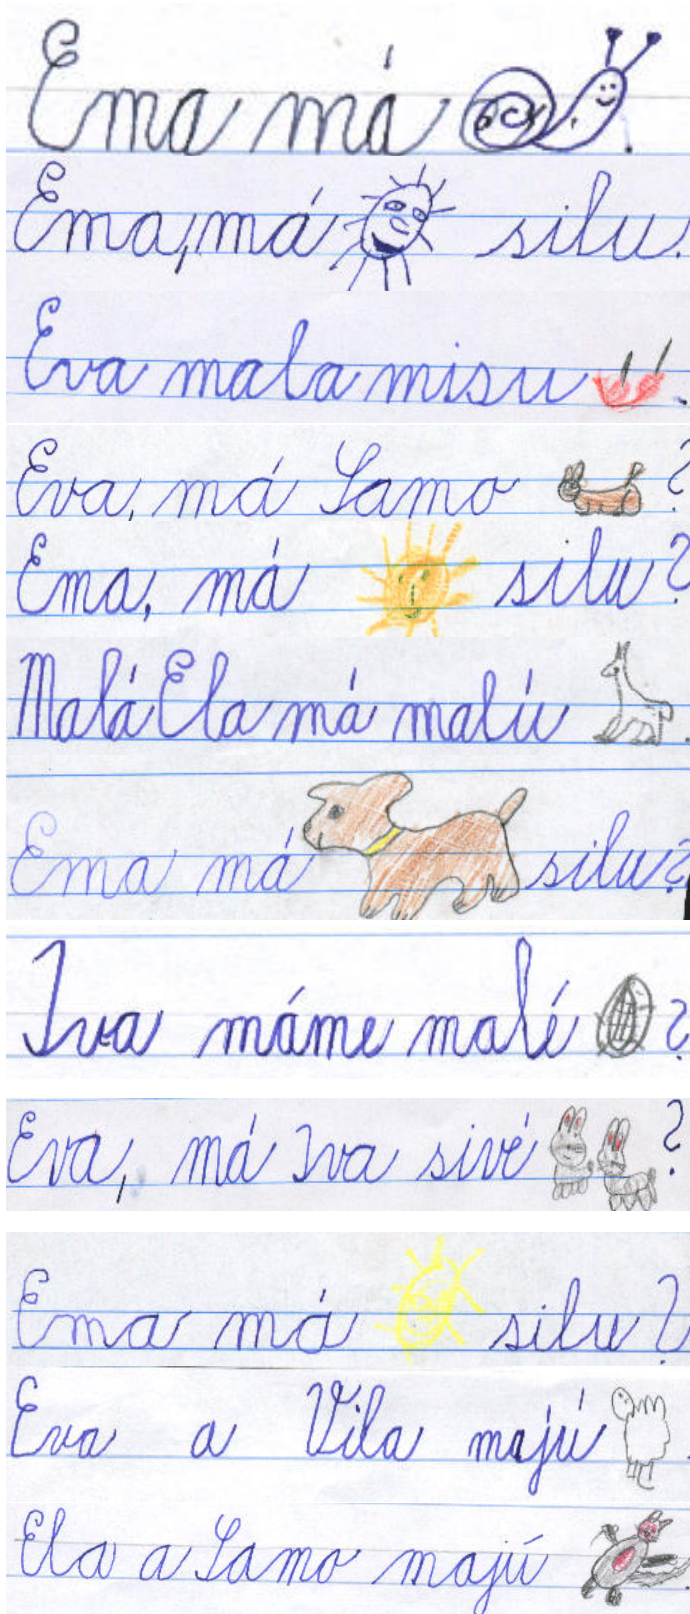 Ema má .
Ema, má silu.
Eva mala misu .
Eva, má Samo ?
Ema, má silu?
Malá Ela má malú .
Ema má silu?
Iva máme malé ?
Eva, má Iva sivé ?
Ema má silu?
Eva a Vila majú .
Ela a Samo majú .